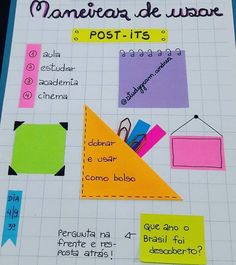 Maneiras de usar
POST-ITS
1 aula
2 estudar
3 academia
4 cinema
dobrar
e usar
como bolso
DIA
4/9
3ª
Pergunta na
frente e res-
posta atrás!
Que ano o
Brasil foi
descoberto?